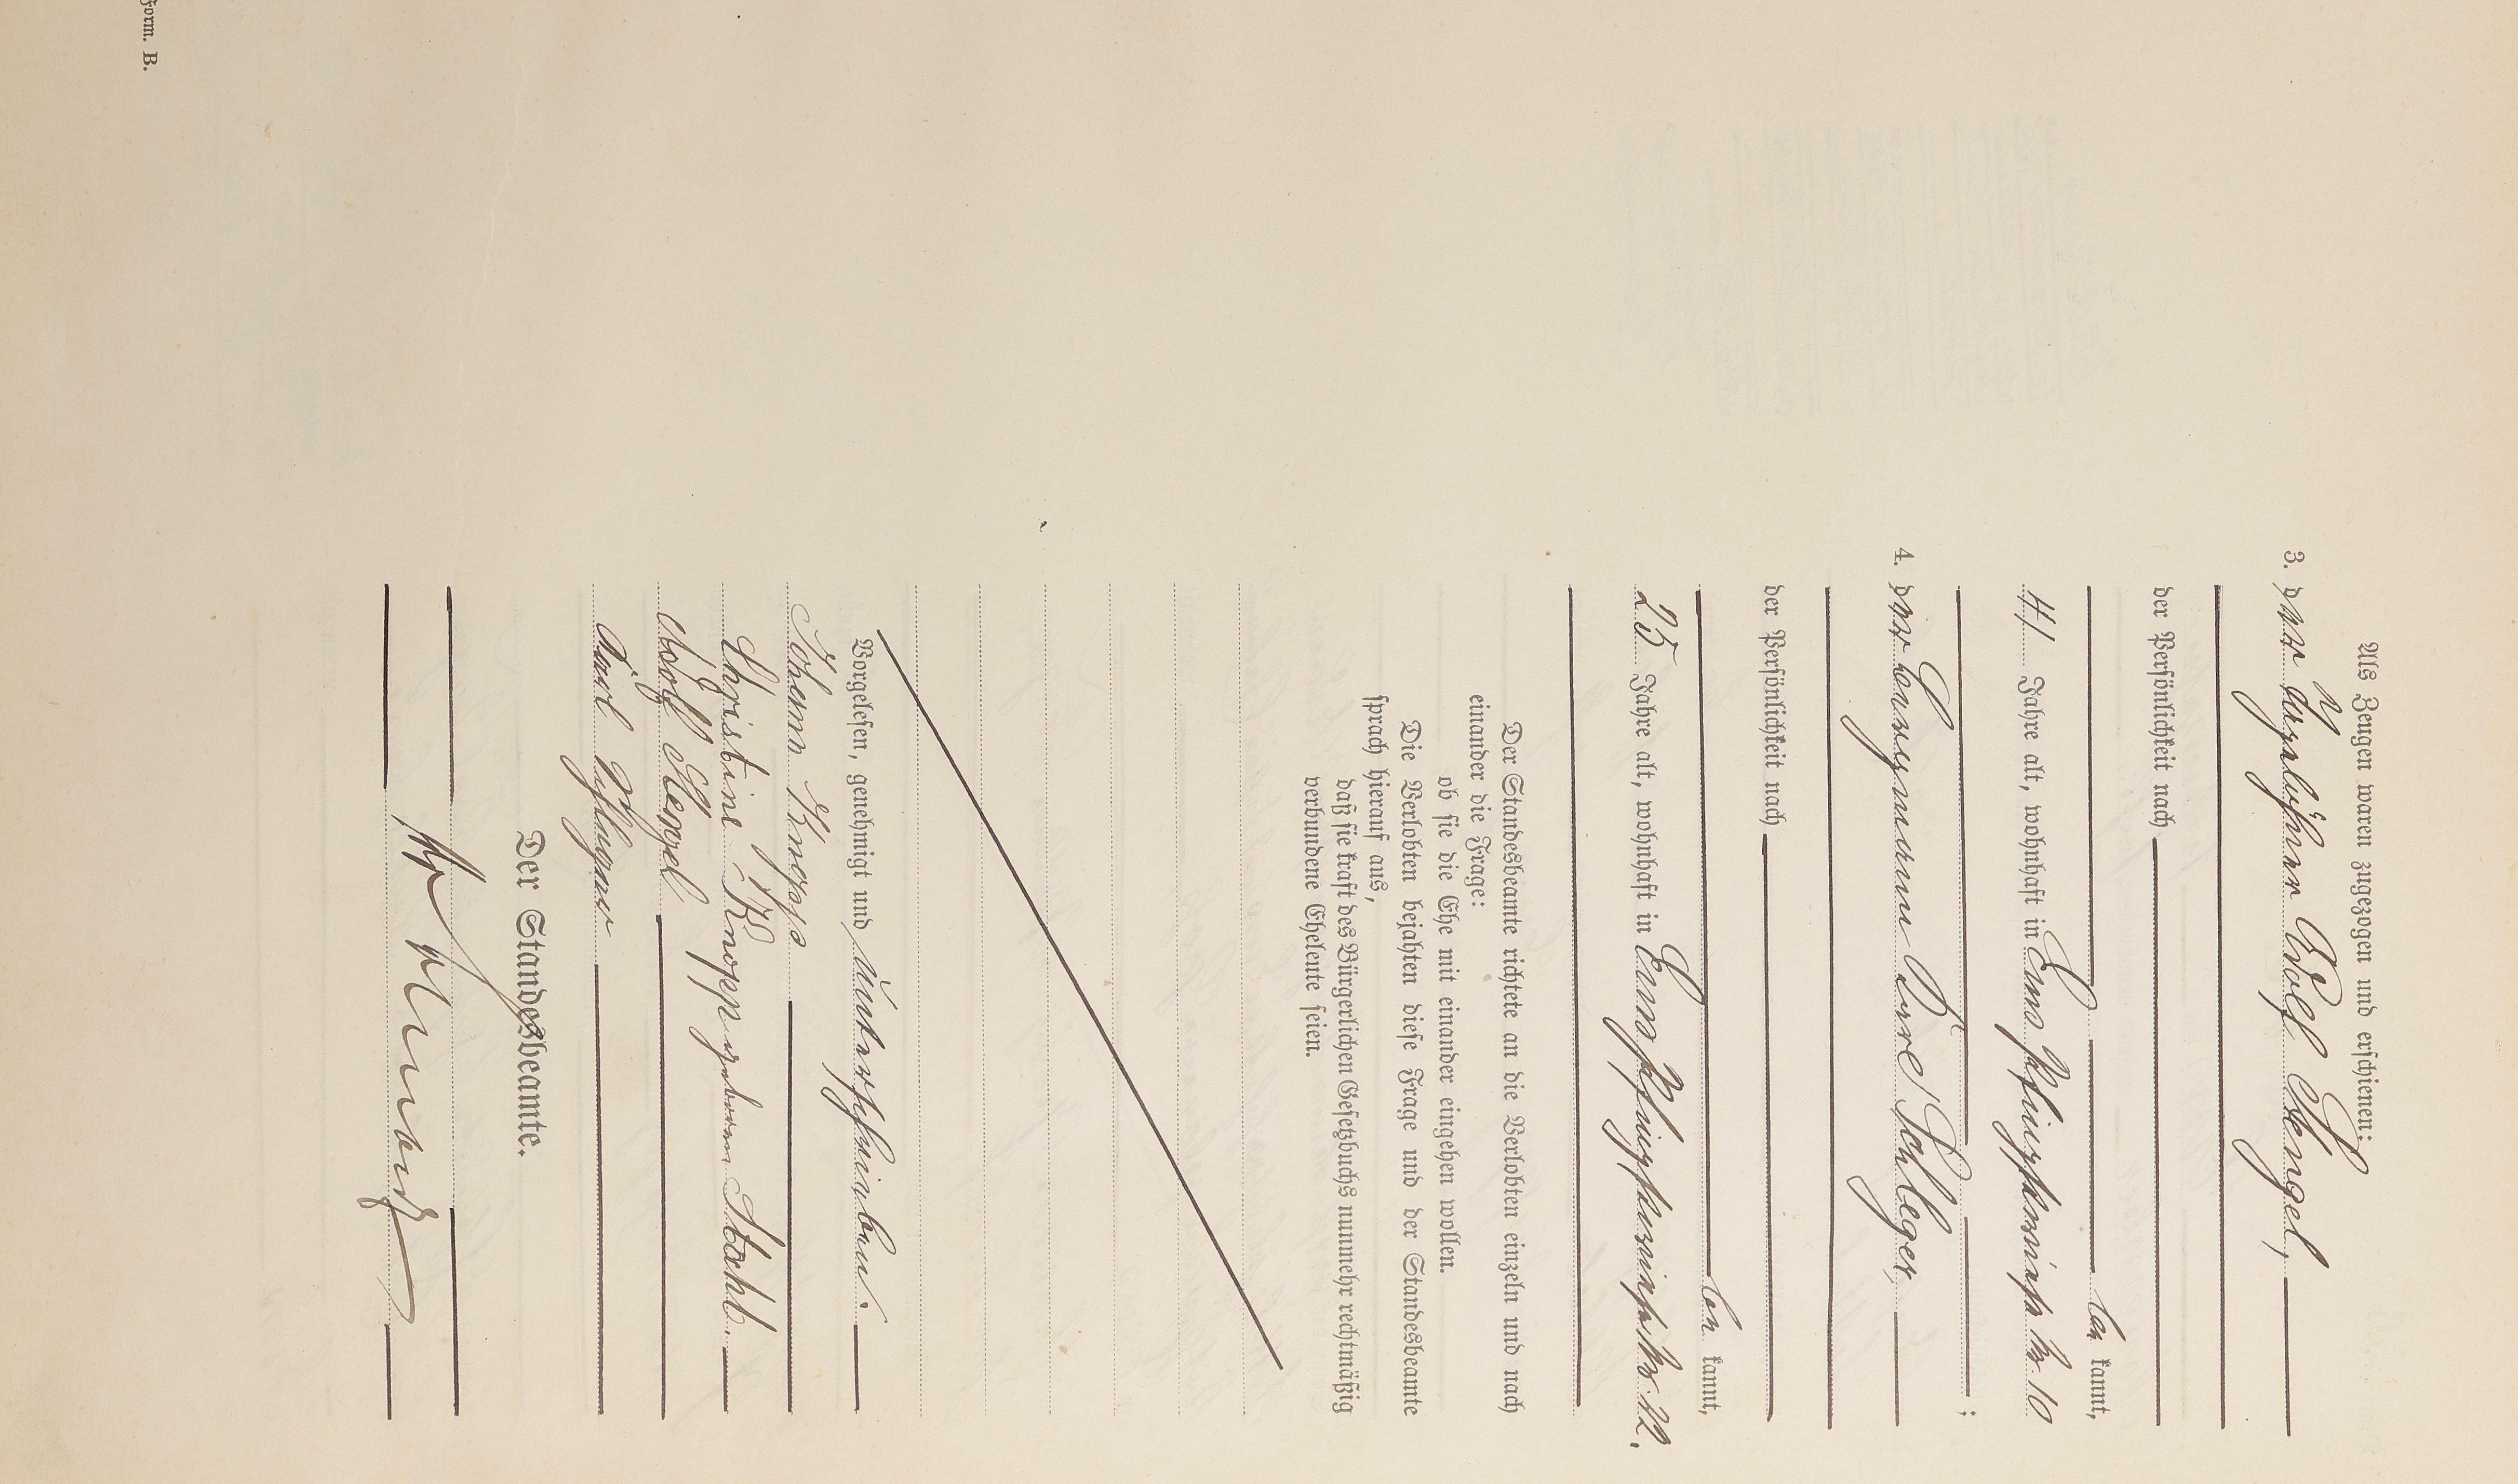 Als Zeugen waren zugezogen und erschienen:
3. der Tagelöhner Adolf Stengel,
der Persönlichkeit nach
be kannt,
41 Jahre alt, wohnhaft in
;
4. der Bergmann Karl
der Persönlichkeit nach
be kannt,
25 Jahre alt, wohnhaft in
Der Standesbeamte richtete an die Verlobten einzeln und nach
einander die Frage:
ob sie die Ehe mit einander eingehen wollen.
Die Verlobten bejahten diese Frage und der Standesbeamte
sprach hierauf aus,
daß sie kraft des Bürgerlichen Gesetzbuchs nunmehr rechtmäßig
verbundene Eheleute seien.
Vorgelesen, genehmigt und unterschrieben.
Johann Knopp
Christine Knopp geboren Stahl.
Adolf Stengel
Karl
Der Standesbeamte.
Form. B.